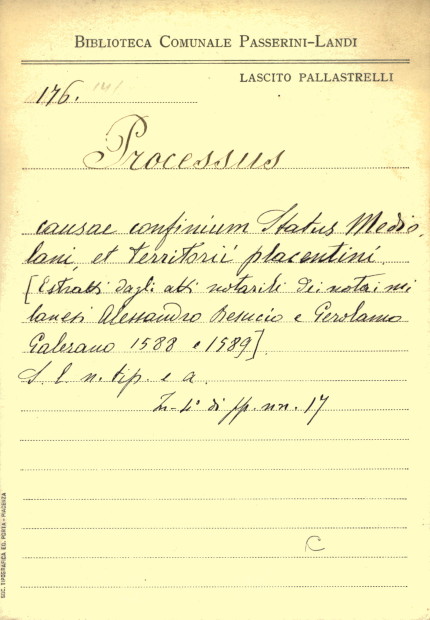 BIBLIOTECA COMUNALE PASSERINI-LANDI
LASCITO PALLASTRELLI
176. 141
Processus
causae confinium Status Medio
lani et territorii placentini.
[Estratti dagli atti notarili dei notai mi
lanesi Alessandro Besucio e Gerolamo
Galerano 1588 e 1589].
S. l. n. tip. e a.
In-4° di pp. nn. 17
C
SOC. TIPOGRAFICA ED. PORTA - PIACENZA